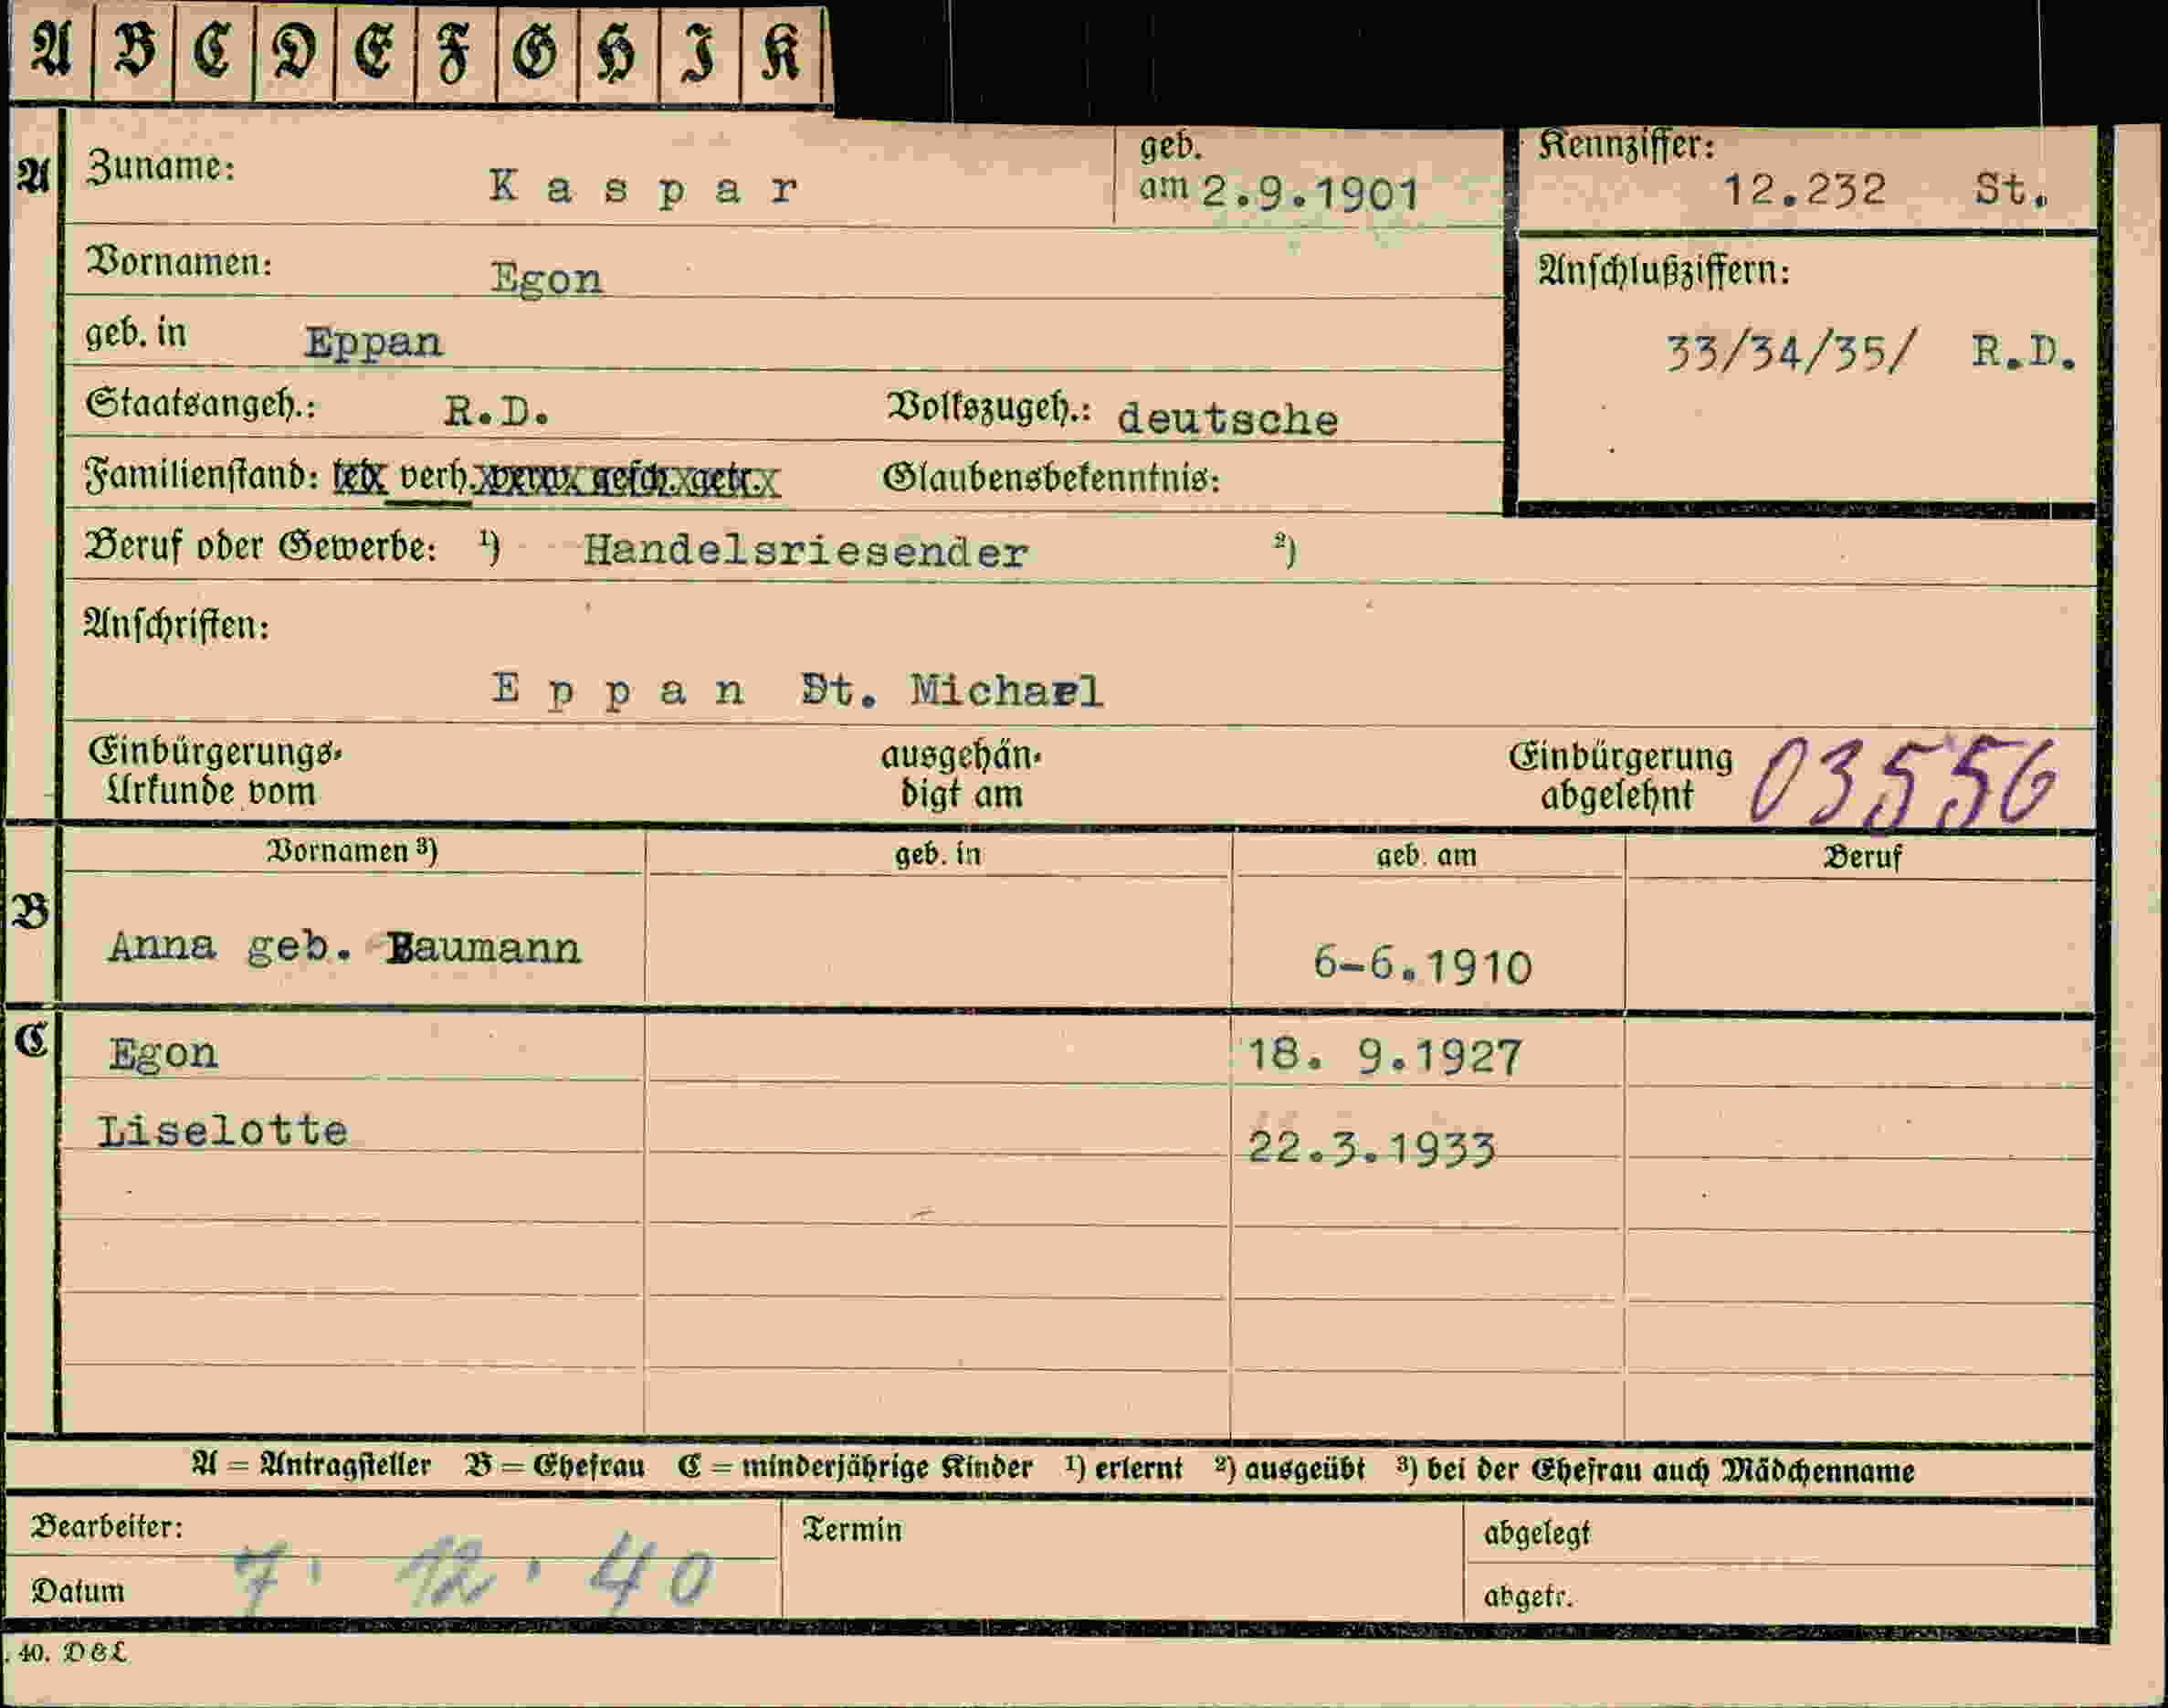 A B C D E F G H I K
A Zuname: Kaspar geb. am 2.9.1901 Kennziffer: 12.232 St.
Vornamen: Egon Anschlußziffern:
geb. in Eppan 33/34/35/ R.D.
Staatsangeh.: R.D. Volkszugeh.: deutsche
Familienstand: led. verh. verw. gesch. getr. Glaubensbekenntnis:
Beruf oder Gewerbe: ¹) Handelsriesender ²)
Anschriften:
Eppan St. Michael
Einbürgerungs- ausgehän- Einbürgerung 03556
Urkunde vom digt am abgelehnt
Vornamen ³) geb. in geb. am Beruf
B Anna geb. Baumann 6-6.1910
C Egon 18. 9.1927
Liselotte 22.3.1933
A = Antragsteller B = Ehefrau C = minderjährige Kinder ¹) erlernt ²) ausgeübt ³) bei der Ehefrau auch Mädchenname
Bearbeiter: Termin abgelegt
Datum 7. 12. 40 abgetr.
. 40. D&L